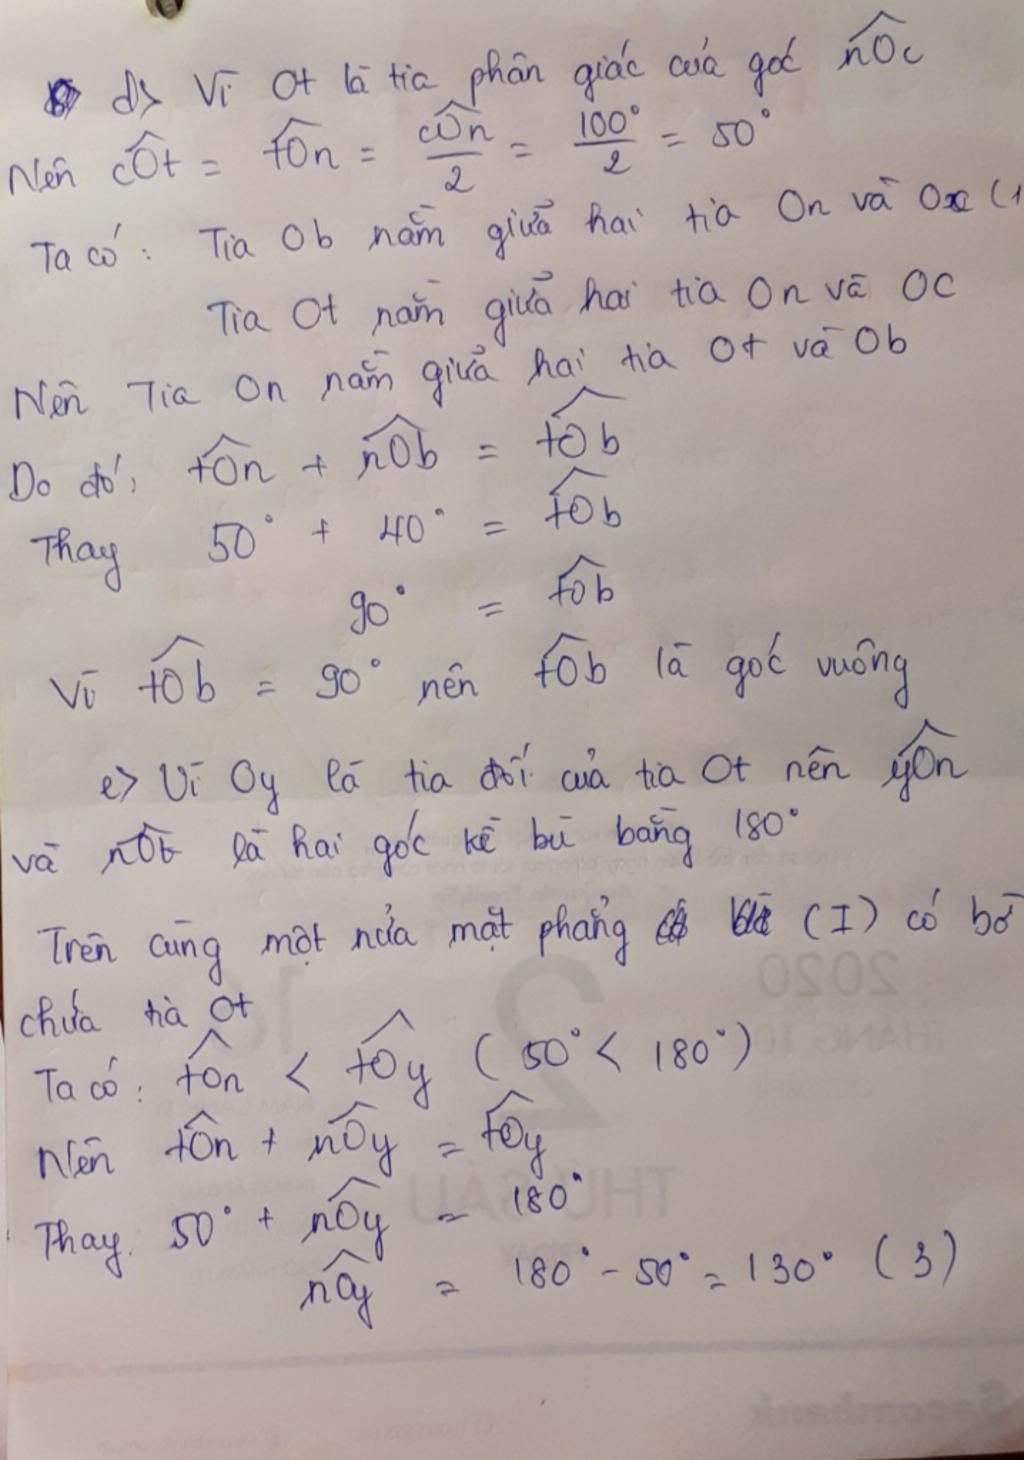 d> Vì Ot là tia phân giác của góc nOc
Nên cOt = tOn = cOn/2 = 100°/2 = 50°
Ta có: Tia Ob nằm giữa hai tia On và Ox (1
Tia Ot nằm giữa hai tia On và OC
Nên Tia On nằm giữa hai tia Ot và Ob
Do đó, tOn + nOb = tOb
Thay 50° + 40° = tOb
90° = tOb
Vì tOb = 90° nên tOb là góc vuông
e> Vì Oy là tia đối của tia Ot nên yOn
và nOt là hai góc kề bù bằng 180°
Trên cùng một nửa mặt phẳng (I) có bờ
chứa tia Ot
Ta có: tOn < tOy (50° < 180°)
Nên tOn + nOy = tOy
Thay. 50° + nOy = 180°
nOy = 180° - 50° = 130° (3)
2020
THÁNG 10
2
THỨ SÁU
Sacombank